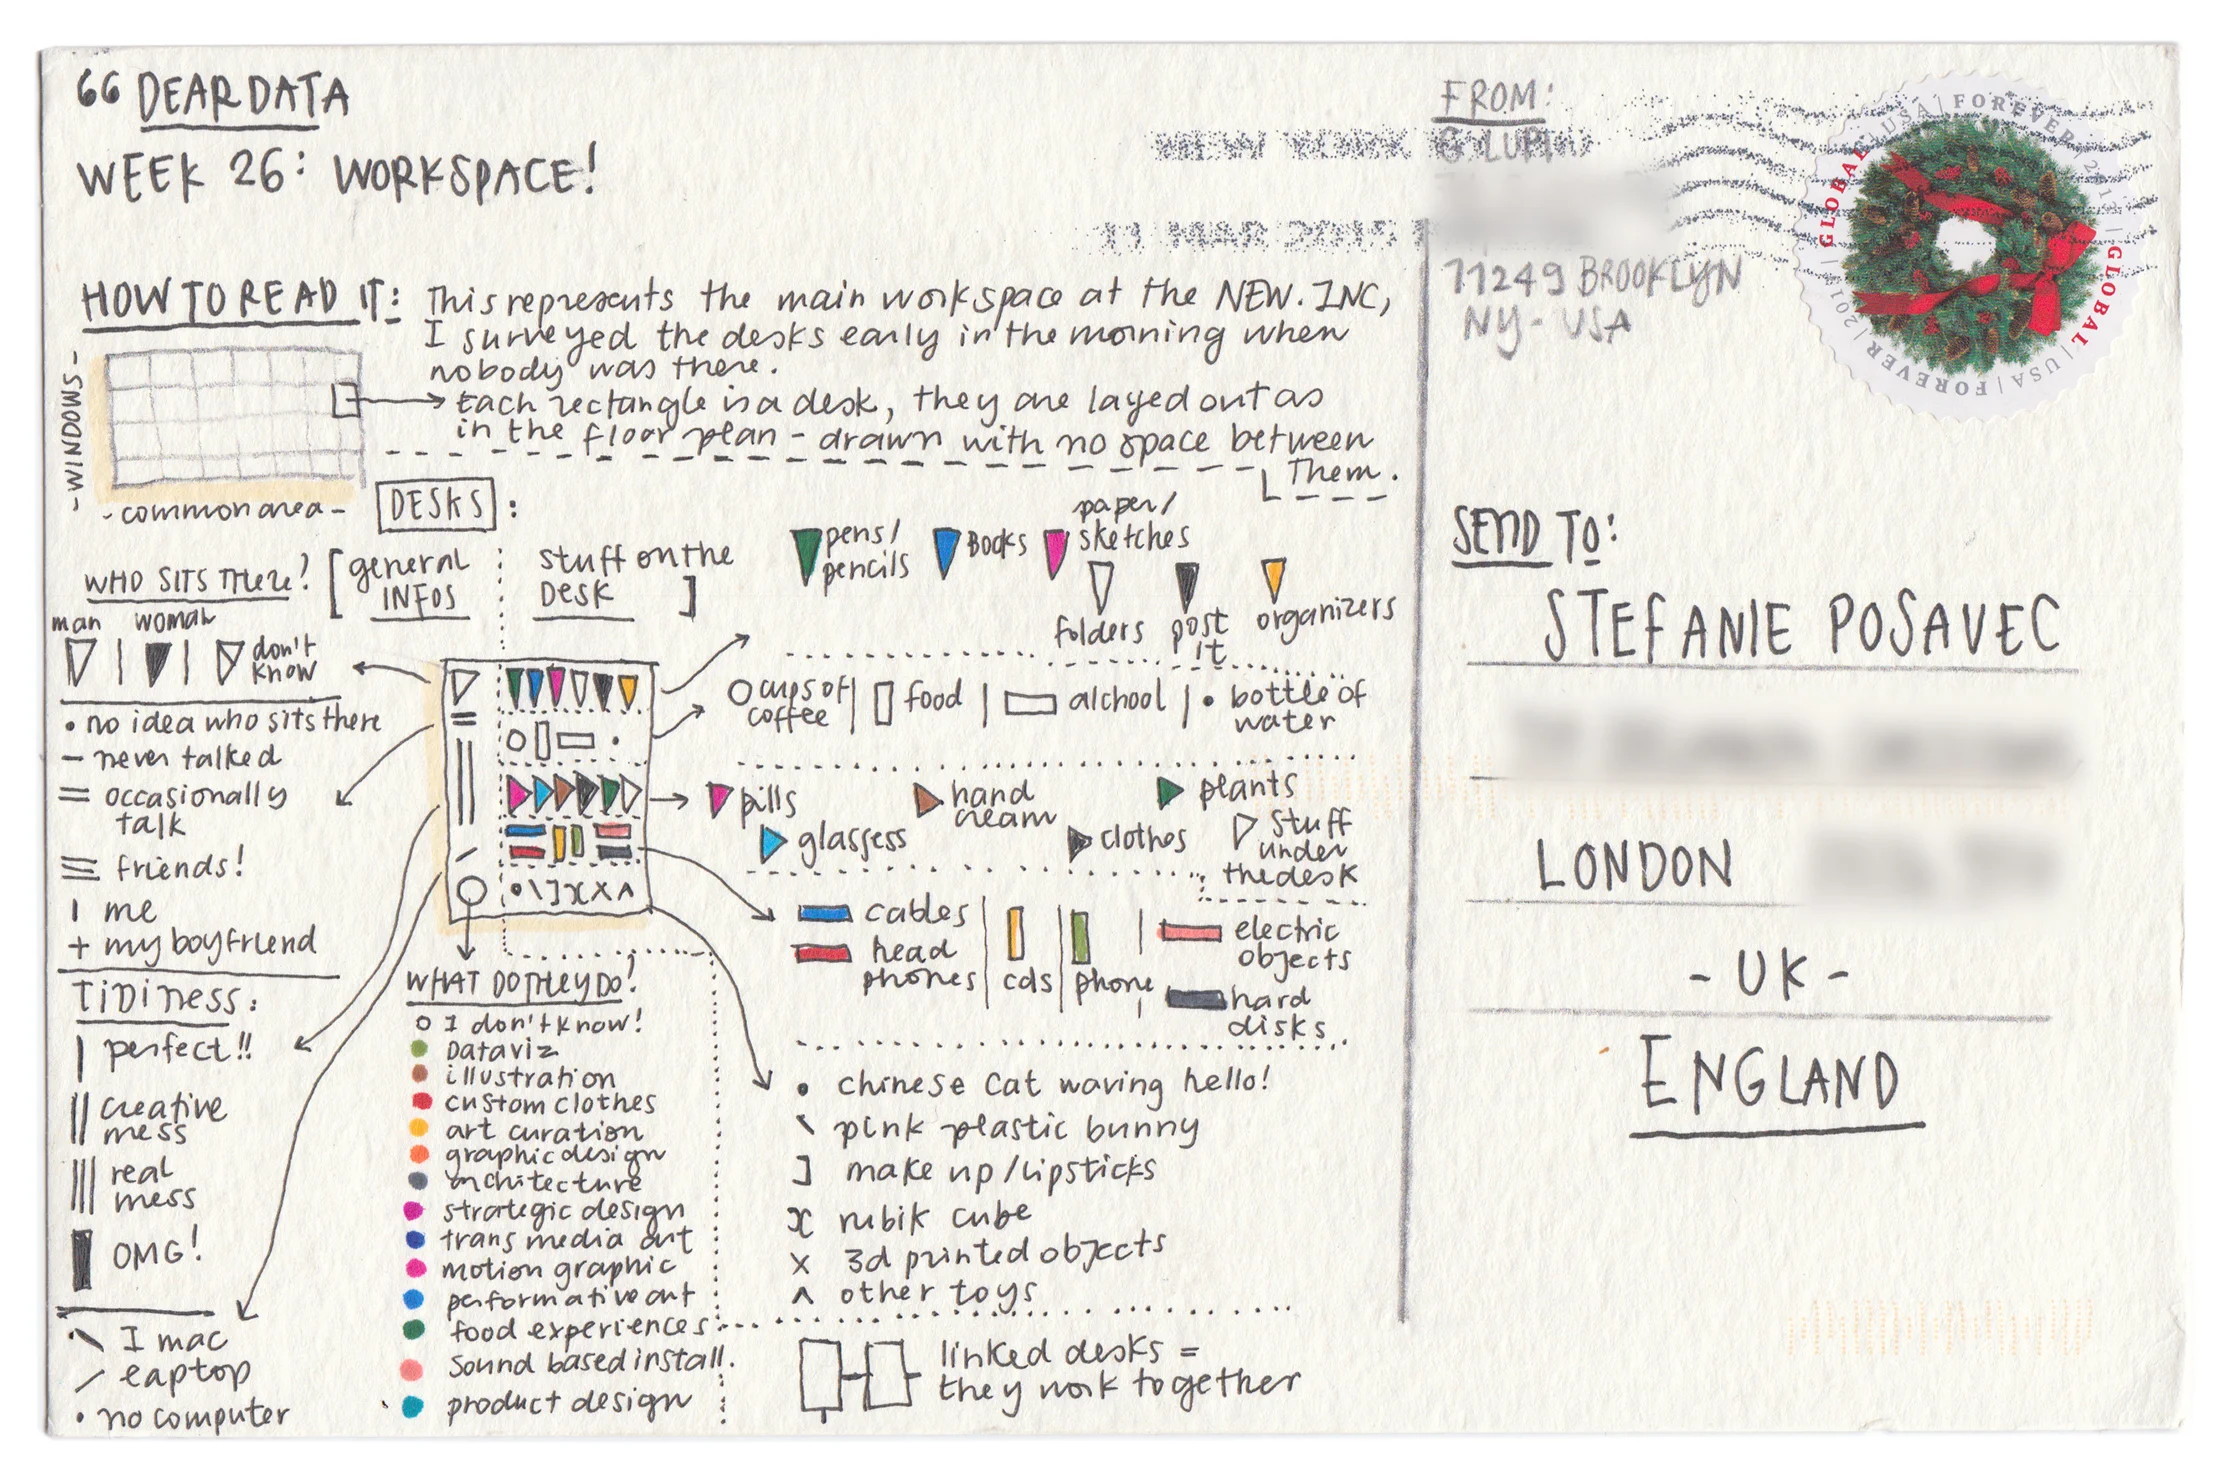 66 DEAR DATA
WEEK 26: WORKSPACE!
HOW TO READ IT:
This represents the main workspace at the NEW.INC,
I surveyed the desks early in the morning when
nobody was there.
Each rectangle is a desk, they are layed out as
in the floor plan - drawn with no space between
Them.
- WINDOWS -
- common area -
DESKS :
[ general
INFOS
stuff on the
DESK ]
WHO SITS THERE?
man
woman
don't
know
• no idea who sits there
— never talked
= occasionally
talk
≡ friends!
I me
+ my boyfriend
TIDINESS:
| perfect!!
|| creative
mess
||| real
mess
OMG!
\ I mac
/ laptop
• no computer
WHAT DO THEY DO?
O I don't know!
Dataviz
illustration
custom clothes
art curation
graphic design
architecture
strategic design
trans media art
motion graphic
performative art
food experiences
sound based install.
product design
pens/
pencils
BOOKS
paper/
sketches
folders
post
it
organizers
cups of
coffee
food
alchool
• bottle of
water
pills
glassess
hand
cream
clothes
plants
stuff
under
the desk
cables
head
phones
cds
phone
electric
objects
hard
disks
• chinese cat waving hello!
\ pink plastic bunny
] make up/lipsticks
x rubik cube
x 3d printed objects
^ other toys
linked desks =
they work together
FROM:
G. LUPI
11249 BROOKLYN
NY - USA
NEW YORK
11 MAR 2015
GLOBAL | USA | FOREVER | 2013 | GLOBAL | USA | FOREVER | 2013 |
SEND TO:
STEFANIE POSAVEC
LONDON
- UK -
ENGLAND